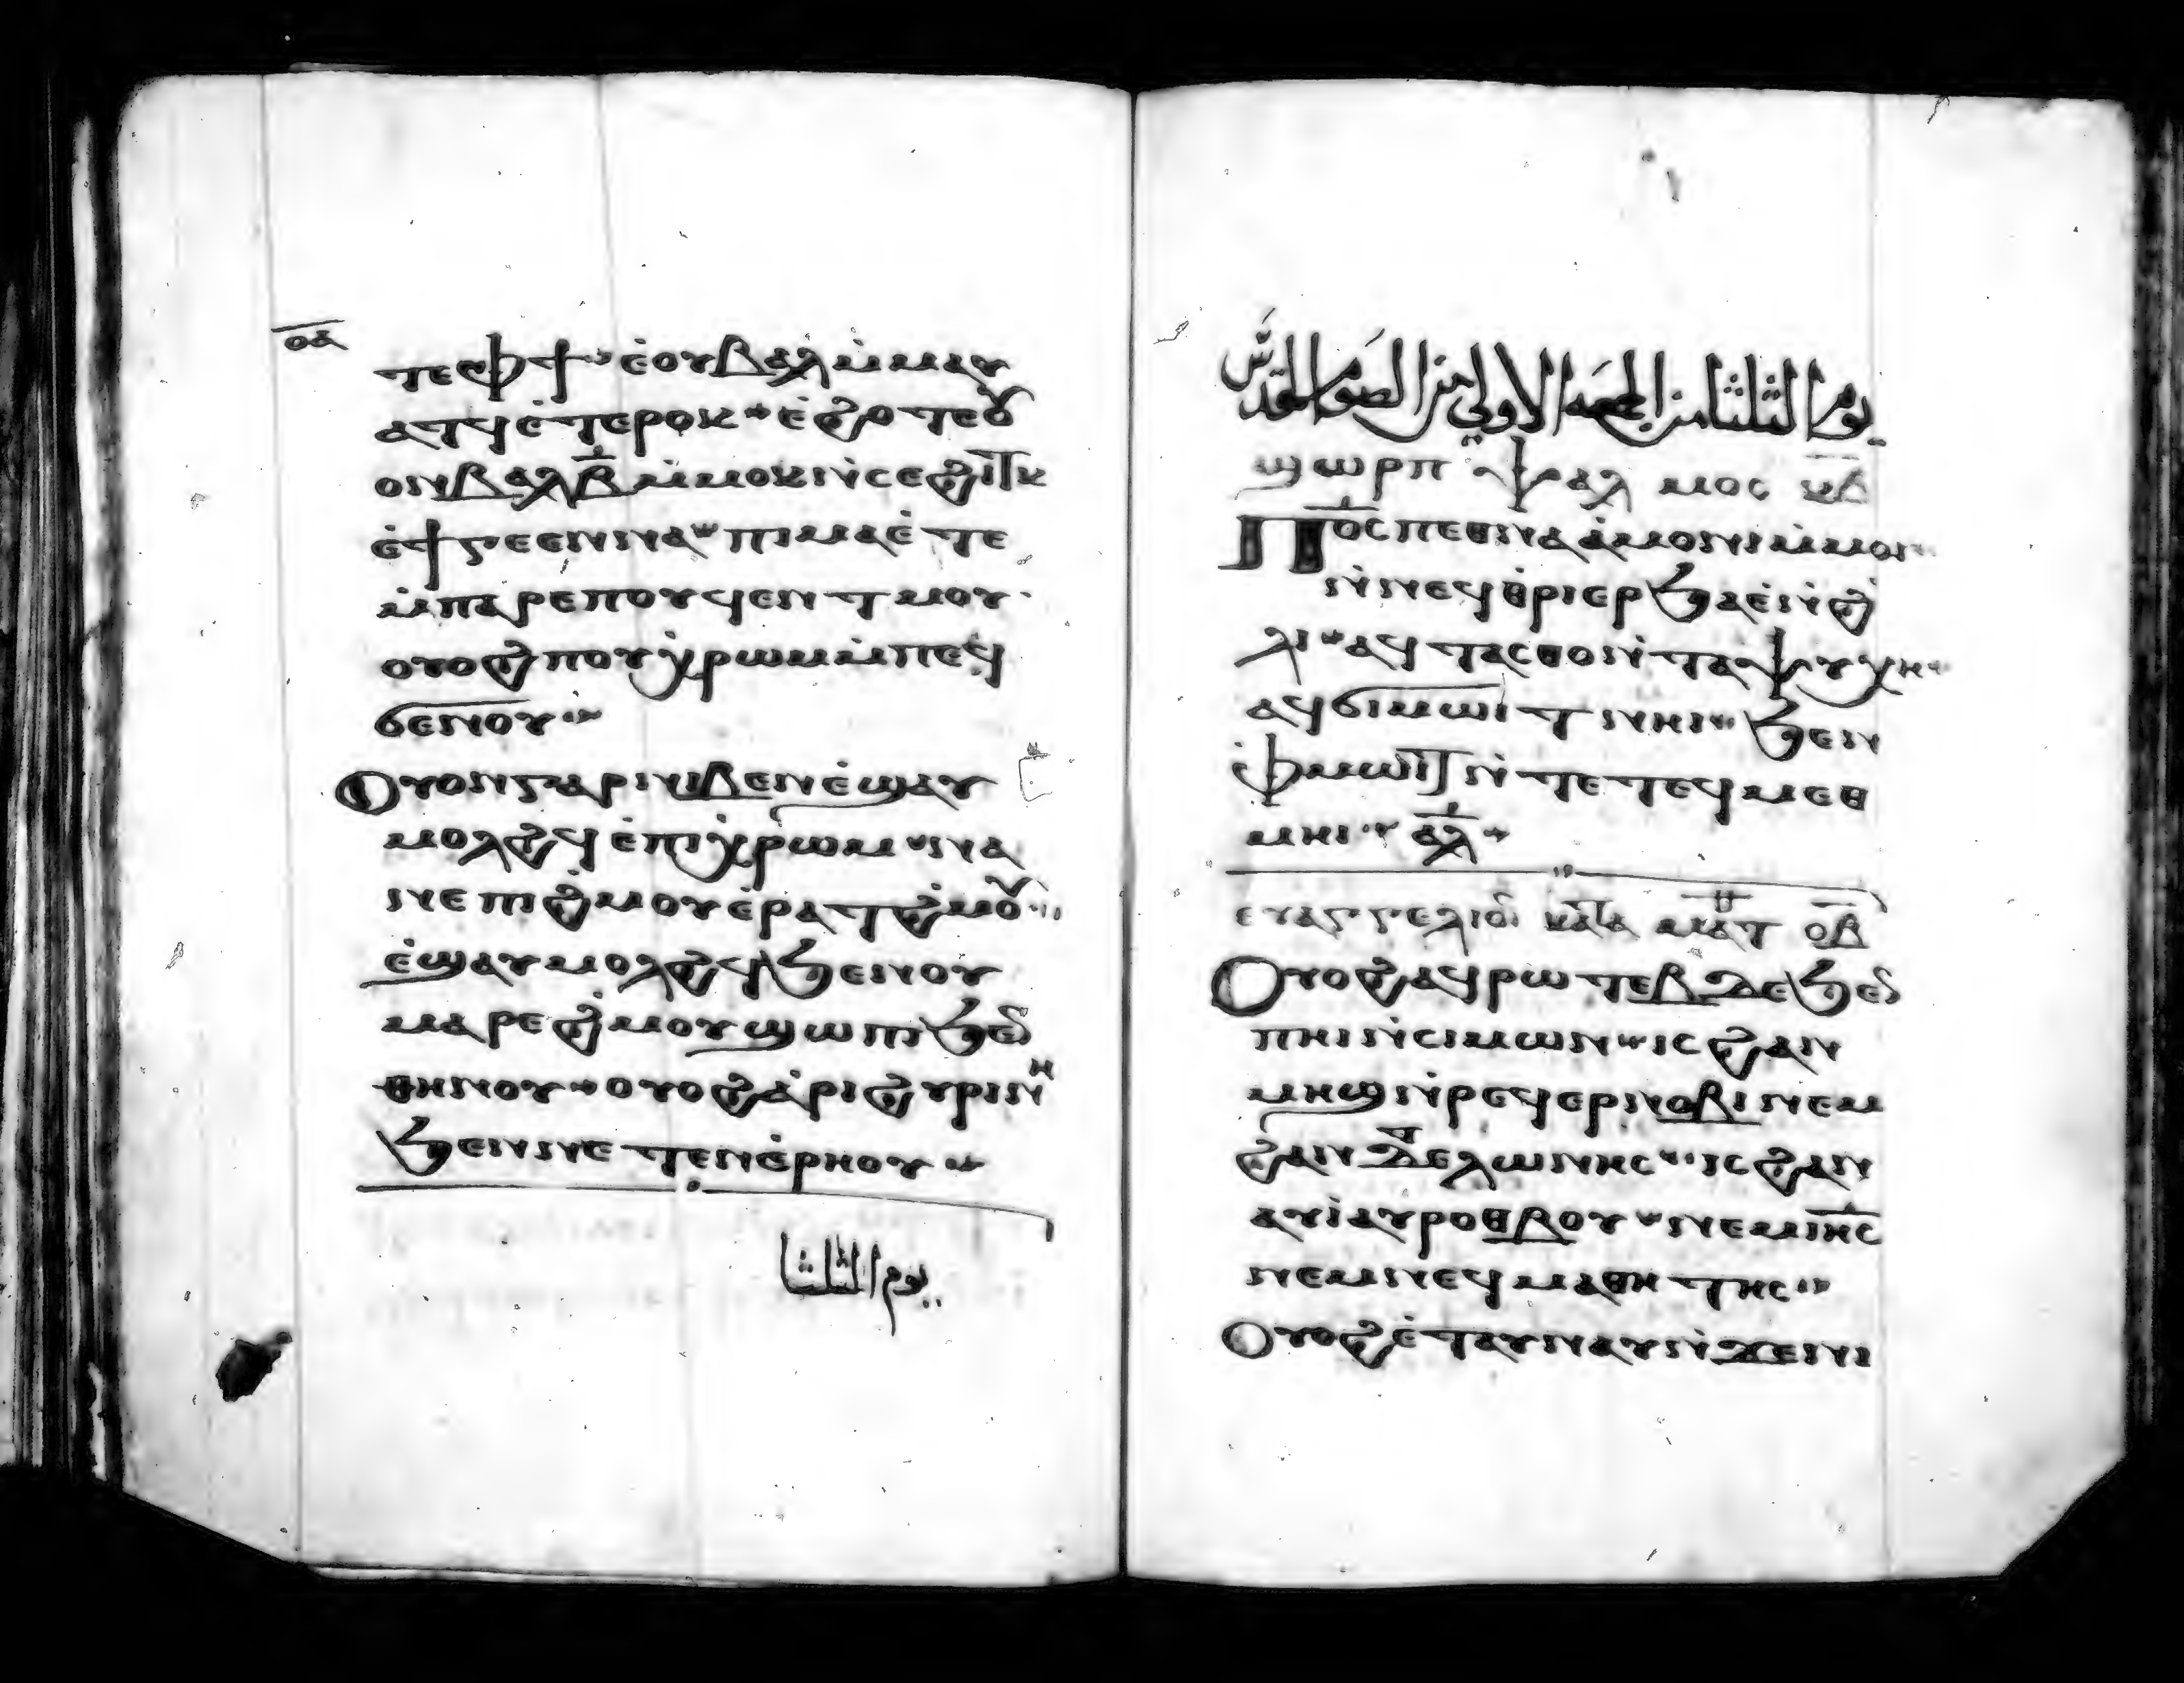 ⲟⲁ
ⲧⲉⲫϯ ⲉ̇ⲟⲩⲃⲁⲗ ⲙ̇ⲙⲁⲩ
ⲁⲧϥ ⲉ̇ⲧⲉⲣⲟⲕ ⲉ̇ϩⲟⲧⲉ ⲟⲩ
ⲟⲛ ⲃⲁⲗ ⲃ̅ ⲙ̇ⲙⲟⲕ ⲛ̇ⲥⲉϩⲓⲧⲕ
ⲉ̇ϯⲅⲉⲉⲛⲛⲁ ⲡⲓⲙⲁ ⲉ̇ⲧⲉ
ⲙ̇ⲡⲁⲣⲉ ⲡⲟⲩϥⲉⲛⲧ ⲙⲟⲩ
ⲟⲩⲟϩ ⲡⲟⲩⲭ̇ⲣⲱⲙ ⲙ̇ⲡⲉϥ
ϭⲉⲛⲟⲩ
Ⲟⲩⲟⲛ ⲅⲁⲣ ⲛⲓⲃⲉⲛ ⲉ̇ϣⲁⲩ
ⲙⲟⲗϩϥ ⲉ̇ⲡⲓⲭ̇ⲣⲱⲙ ⲛⲁ
ⲛⲉ ⲡⲓϩ̇ⲙⲟⲩ ⲉ̇ⲣⲁⲧϩ̇ⲙⲟⲩ
ⲉ̇ϣⲁⲩⲙⲟⲗϩϥ ϧⲉⲛ ⲟⲩ
ⲙⲁⲣⲉ ϩ̇ⲙⲟⲩ ϣⲱⲡⲓ ϧⲉⲛ
ⲑⲏⲛⲟⲩ ⲟⲩⲟϩ ⲁ̇ⲣⲓ ϩⲩⲣⲓⲛⲏ
ϧⲉⲛ ⲛⲉⲧⲉⲛⲉ̇ⲣⲏⲟⲩ
يوم الثلثا
يوم الثلثا من الجمعه الاولي من الصوم المقدس
ϣⲱⲣⲡ ⲯⲁⲗⲙⲟⲥ ⲕⲃ
Ⲡⲟ̅ⲥ̅ ⲡⲉⲑⲛⲁⲁ̇ⲙⲟⲛⲓ ⲙ̇ⲙⲟⲓ
ⲛ̇ⲛⲉϥⲑⲣⲓⲉⲣϧⲁⲉ̇ ⲛ̇ϩ
ⲗⲓ ⲁϥⲧⲁⲥⲑⲟ ⲛ̇ⲧⲁⲯⲩⲭⲏ
ⲁϥϭⲓⲙⲱⲓⲧ ⲛⲏⲓ ϧⲉⲛ
ⲫ̇ⲙⲱⲓⲧ ⲛ̇ⲧⲉ ⲧⲉϥⲙⲉⲑ
ⲙⲏⲓ ⲁⲗ
ⲉⲩⲁⲅⲅⲉⲗⲓⲟⲛ ⲕⲁⲧⲁ ⲙⲁⲧ ⲟⲃ
Ⲟⲩⲟϩ ⲁϥⲣⲱⲧⲉⲃ ⲇⲉ ϧⲉⲛ
ⲡⲏⲓ ⲛ̇ⲥⲓⲙⲱⲛ ⲓⲥ ϩⲁⲛ
ⲙⲏϣ ⲛ̇ⲣⲉϥⲉⲣⲛⲟⲃⲓ ⲛⲉⲙ
ϩⲁⲛⲇⲉⲗⲱⲛⲏⲥ ⲓⲥ ϩⲁⲛ
ⲁⲩⲓ̇ ⲁⲩⲣⲟⲑⲃⲟⲩ ⲛⲉⲙ ⲓⲏ̅ⲥ̅
ⲛⲉⲙ ⲛⲉϥⲙⲁⲑⲏⲧⲏⲥ
Ⲟⲩⲟϩ ⲉ̇ⲧⲁⲩⲛⲁⲩ ⲛ̇ϫⲉ ⲛⲓ